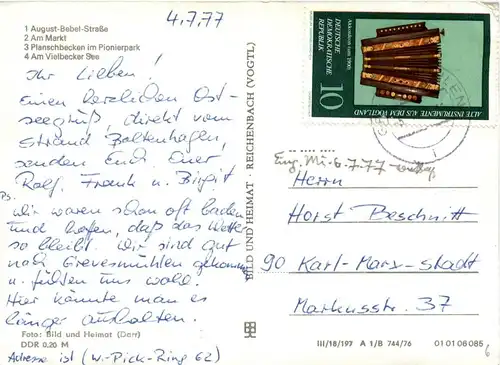 1 August-Bebel-Straße
2 Am Markt
3 Planschbecken im Pionierpark
4 Am Vielbecker See
4.7.77
Ihr Lieben!
Einen herzlichen Ost-
seegruß direkt vom
Strand Boltenhagen,
senden Euch Euer
Rolf, Frank u. Birgit
Ps.
Wir waren schon oft baden
und hoffen, daß das Wetter
so bleibt. Wir sind gut
nach Grevesmühlen gekommen
u. fühlen uns wohl.
Hier könnte man es
länger aushalten.
Foto: Bild und Heimat (Darr)
DDR 0,20 M
Adresse ist (W.-Pick-Ring 62)
BILD UND HEIMAT · REICHENBACH (VOGTL)
DEUTSCHE
DEMOKRATISCHE
REPUBLIK
10
ALTE INSTRUMENTE AUS DEM VOGTLAND
Eing. Mi. 6.7.77
Herrn
Horst Beschnitt
90 Karl-Marx-Stadt
Markusstr. 37
III/18/197 A 1/B 744/76
01 01 06 085